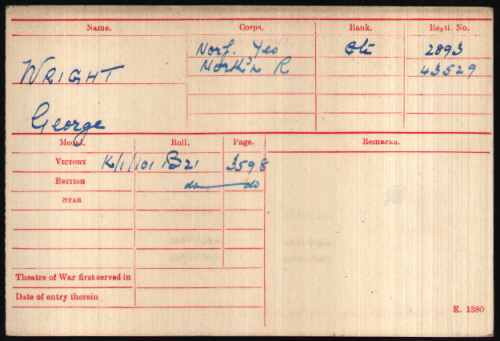 Name. Corps. Rank. Regtl. No.
WRIGHT Norf. Yeo Pte 2893
North'n R 43529
George
Medal. Roll. Page. Remarks.
VICTORY K/1/101 B21 3598
BRITISH do do
STAR
Theatre of War first served in
Date of entry therein
K. 1380